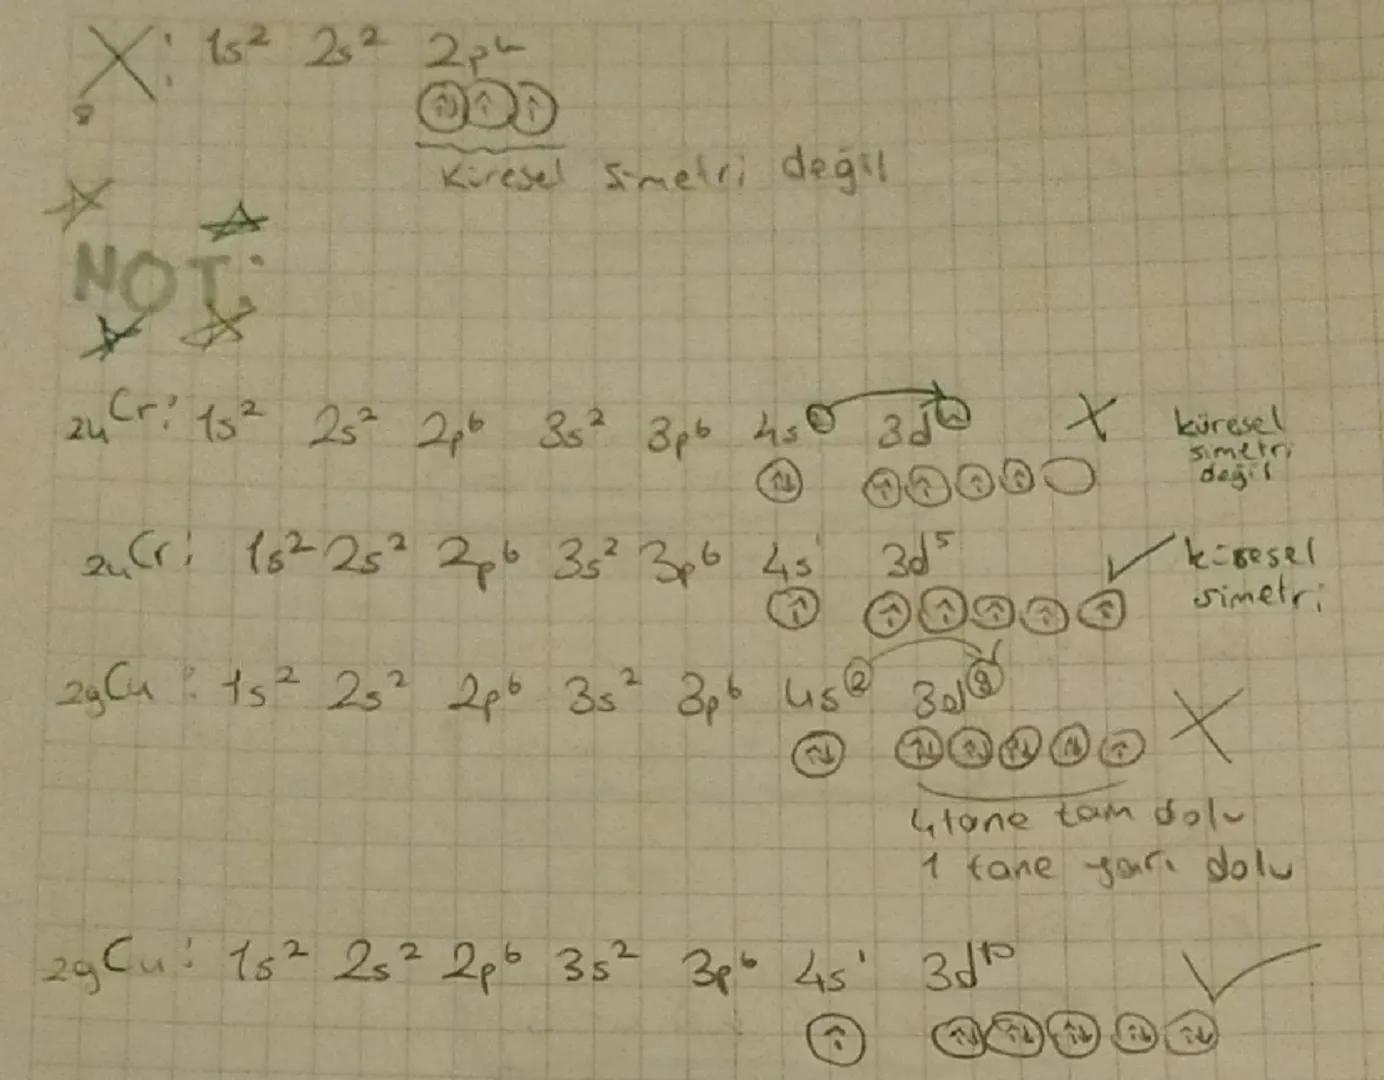 X: 1s² 2s² 2p⁴
8
küresel simetri değil
NOT:
₂₄Cr: 1s² 2s² 2p⁶ 3s² 3p⁶ 4s² 3d⁴ X küresel simetri değil
₂₄Cr: 1s² 2s² 2p⁶ 3s² 3p⁶ 4s¹ 3d⁵ ✓ küresel simetri
₂₉Cu: 1s² 2s² 2p⁶ 3s² 3p⁶ 4s² 3d⁹ X
4 tane tam dolu
1 tane yarı dolu
₂₉Cu: 1s² 2s² 2p⁶ 3s² 3p⁶ 4s¹ 3d¹⁰ ✓